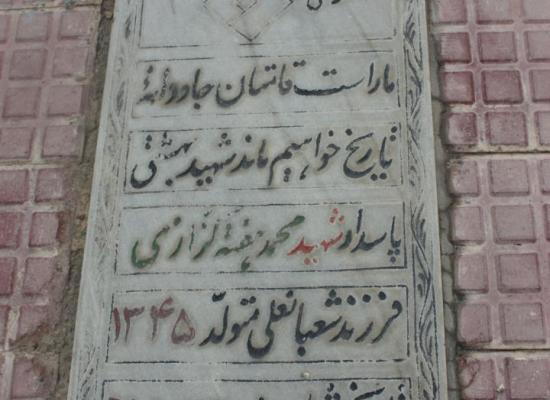 ماراست قامتان جاودانهٔ
تاریخ خواهیم ماند شهید بهشتی
پاسدار شهید محمد هفته لزاری
فرزند شعبانعلی متولد ۱۳۴۵